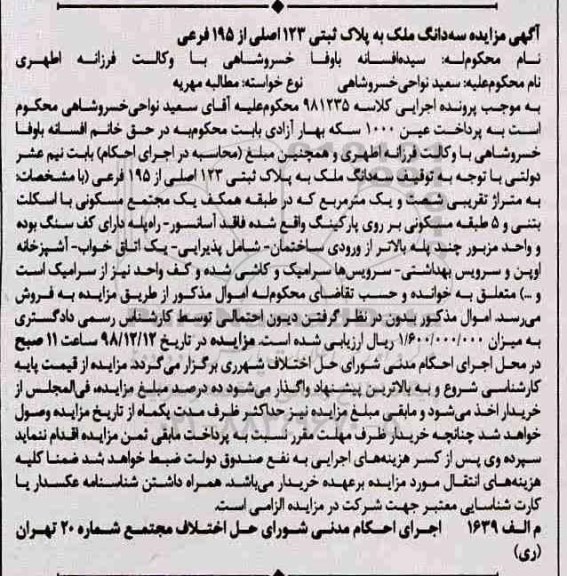 آگهی مزایده سه‌دانگ ملک به پلاک ثبتی ۱۲۳ اصلی از ۱۹۵ فرعی
نام محکوم‌له: سیده‌افسانه باوفا خسروشاهی با وکالت فرزانه اطهری
نام محکوم‌علیه: سعید نواحی‌خسروشاهی نوع خواسته: مطالبه مهریه
به موجب پرونده اجرایی کلاسه ۹۸۱۲۳۵ محکوم‌علیه آقای سعید نواحی‌خسروشاهی محکوم
است به پرداخت عین ۱۰۰۰ سکه بهار آزادی بابت محکوم‌به در حق خانم افسانه باوفا
خسروشاهی با وکالت فرزانه اطهری و همچنین مبلغ (محاسبه در اجرای احکام) بابت نیم عشر
دولتی با توجه به توقیف سه‌دانگ ملک به پلاک ثبتی ۱۲۳ اصلی از ۱۹۵ فرعی (با مشخصات:
به متراژ تقریبی شصت و یک مترمربع که در طبقه همکف یک مجتمع مسکونی با اسکلت
بتنی و ۵ طبقه مسکونی بر روی پارکینگ واقع شده فاقد آسانسور- راه‌پله دارای کف سنگ بوده
و واحد مزبور چند پله بالاتر از ورودی ساختمان- شامل پذیرایی- یک اتاق خواب- آشپزخانه
اوپن و سرویس بهداشتی- سرویس‌ها سرامیک و کاشی شده و کف واحد نیز از سرامیک است
و ...) متعلق به خوانده و حسب تقاضای محکوم‌له اموال مذکور از طریق مزایده به فروش
می‌رسد. اموال مذکور بدون در نظر گرفتن دیون احتمالی توسط کارشناس رسمی دادگستری
به میزان ۱/۶۰۰/۰۰۰/۰۰۰ ریال ارزیابی شده است. مزایده در تاریخ ۹۸/۱۲/۱۲ ساعت ۱۱ صبح
در محل اجرای احکام مدنی شورای حل اختلاف شهرری برگزار می‌گردد. مزایده از قیمت پایه
کارشناسی شروع و به بالاترین پیشنهاد واگذار می‌شود ده درصد مبلغ مزایده، فی‌المجلس از
خریدار اخذ می‌شود و مابقی مبلغ مزایده نیز حداکثر ظرف مدت یکماه از تاریخ مزایده وصول
خواهد شد چنانچه خریدار ظرف مهلت مقرر نسبت به پرداخت مابقی ثمن مزایده اقدام ننماید
سپرده وی پس از کسر هزینه‌های اجرایی به نفع صندوق دولت ضبط خواهد شد ضمنا کلیه
هزینه‌های انتقال مورد مزایده برعهده خریدار می‌باشد. همراه داشتن شناسنامه عکسدار یا
کارت شناسایی معتبر جهت شرکت در مزایده الزامی است.
م الف ۱۶۳۹ اجرای احکام مدنی شورای حل اختلاف مجتمع شماره ۲۰ تهران
(ری)